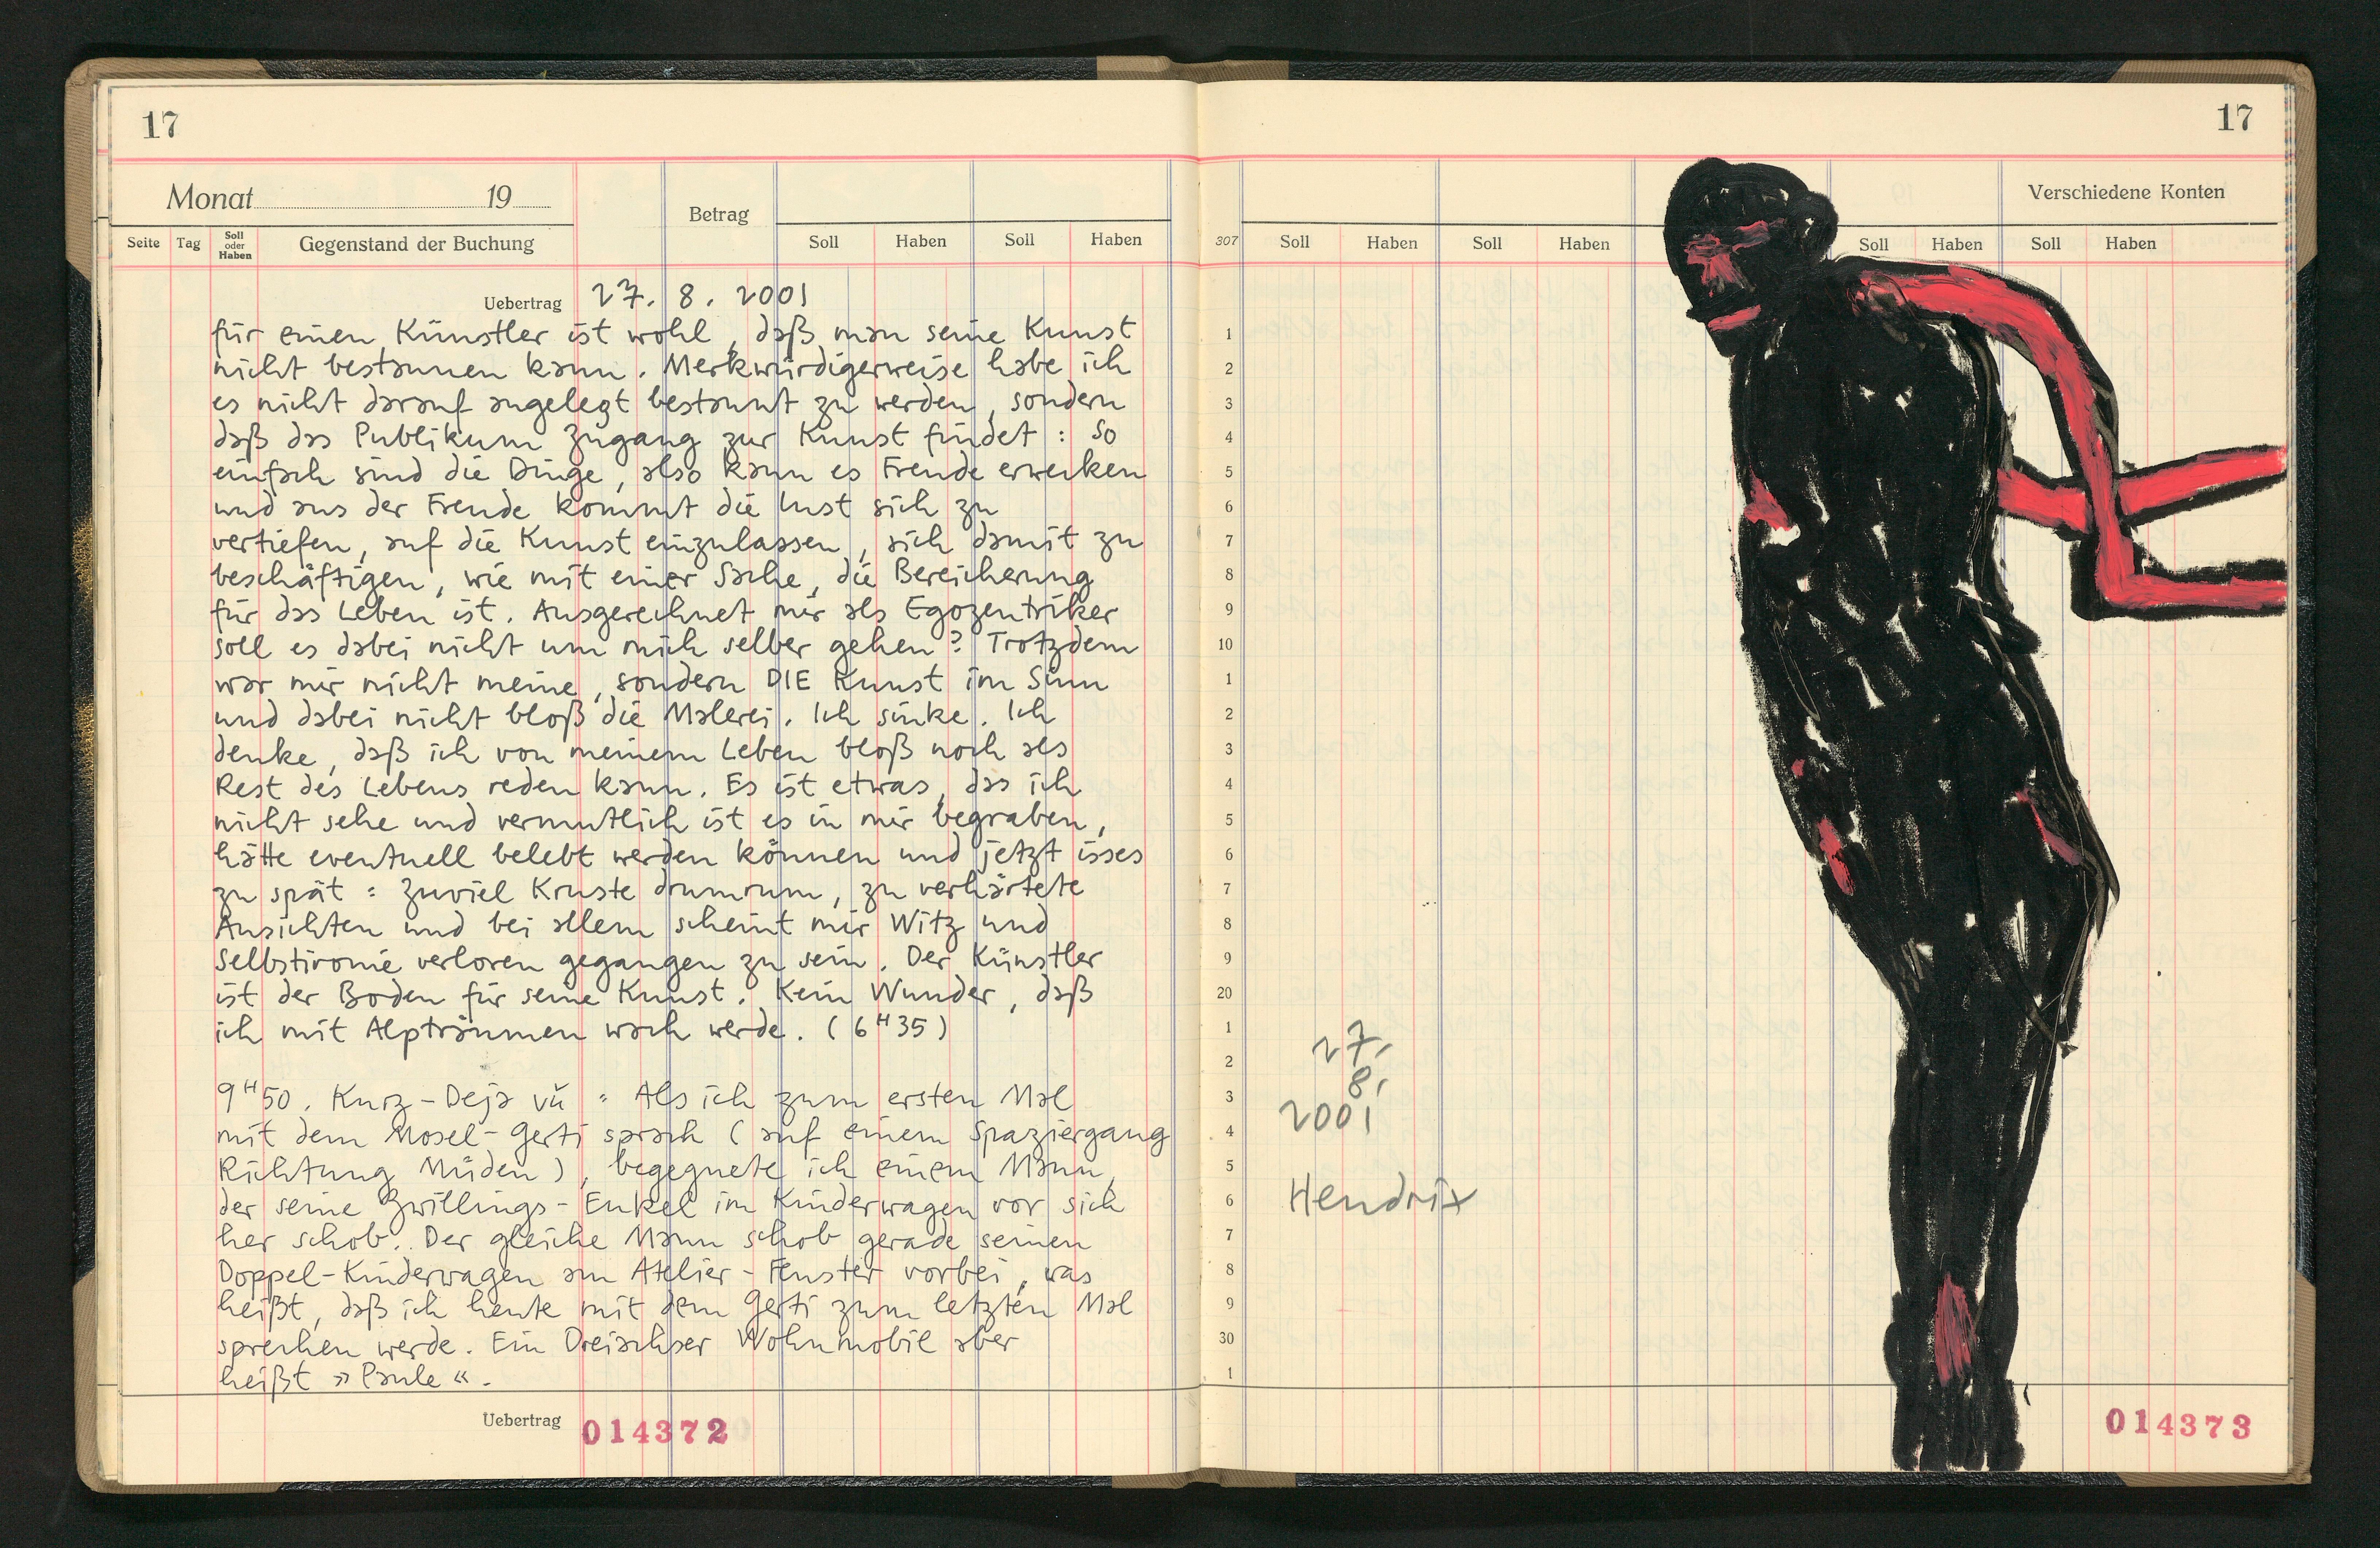 17
17
Monat 19
Betrag
Verschiedene Konten
Seite Tag Soll oder Haben Gegenstand der Buchung Soll Haben Soll Haben
307 Soll Haben Soll Haben Soll Haben Soll Haben
Uebertrag 27. 8. 2001
für einen Künstler ist wohl, daß man seine Kunst
nicht bestaunen kann. Merkwürdigerweise habe ich
es nicht darauf angelegt bestaunt zu werden, sondern
daß das Publikum Zugang zur Kunst findet : so
einfach sind die Dinge, also kann es Freude erwecken
und aus der Freude kommt die Lust sich zu
vertiefen, auf die Kunst einzulassen, sich damit zu
beschäftigen, wie mit einer Sache, die Bereicherung
für das Leben ist. Ausgerechnet mir als Egozentriker
soll es dabei nicht um mich selber gehen? Trotzdem
war mir nicht meine, sondern DIE Kunst im Sinn
und dabei nicht bloß die Malerei. Ich sinke. Ich
denke, daß ich von meinem Leben bloß noch als
Rest des Lebens reden kann. Es ist etwas, das ich
nicht sehe und vermutlich ist es in mir begraben,
hätte eventuell belebt werden können und jetzt isses
zu spät : zuviel Kruste drumrum, zu verhärtete
Ansichten und bei allem scheint mir Witz und
Selbstironie verloren gegangen zu sein. Der Künstler
ist der Boden für seine Kunst. Kein Wunder, daß
ich mit Alpträumen wach werde. (6 H 35)
9 H 50. Kurz-Deja vü : Als ich zum ersten Mal
mit dem Mosel-Gerti sprach (auf einem Spaziergang
Richtung Müden), begegnete ich einem Mann,
der seine Zwillings-Enkel im Kinderwagen vor sich
her schob. Der gleiche Mann schob gerade seinen
Doppel-Kinderwagen am Atelier-Fenster vorbei, was
heißt, daß ich heute mit dem Gerti zum letzten Mal
sprechen werde. Ein Dreiachser Wohnmobil aber
heißt »Paule«.
Uebertrag 014372
1
2
3
4
5
6
7
8
9
10
1
2
3
4
5
6
7
8
9
20
1
2
3
4
5
6
7
8
9
30
1
27.
8.
2001
Hendrix
014373